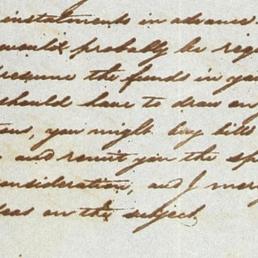 instalments in advance
would probably be requ
resume the funds in you
should have to draw on
you might buy bills
and remit you the sp
onsideration, and I mer
deas on the subject